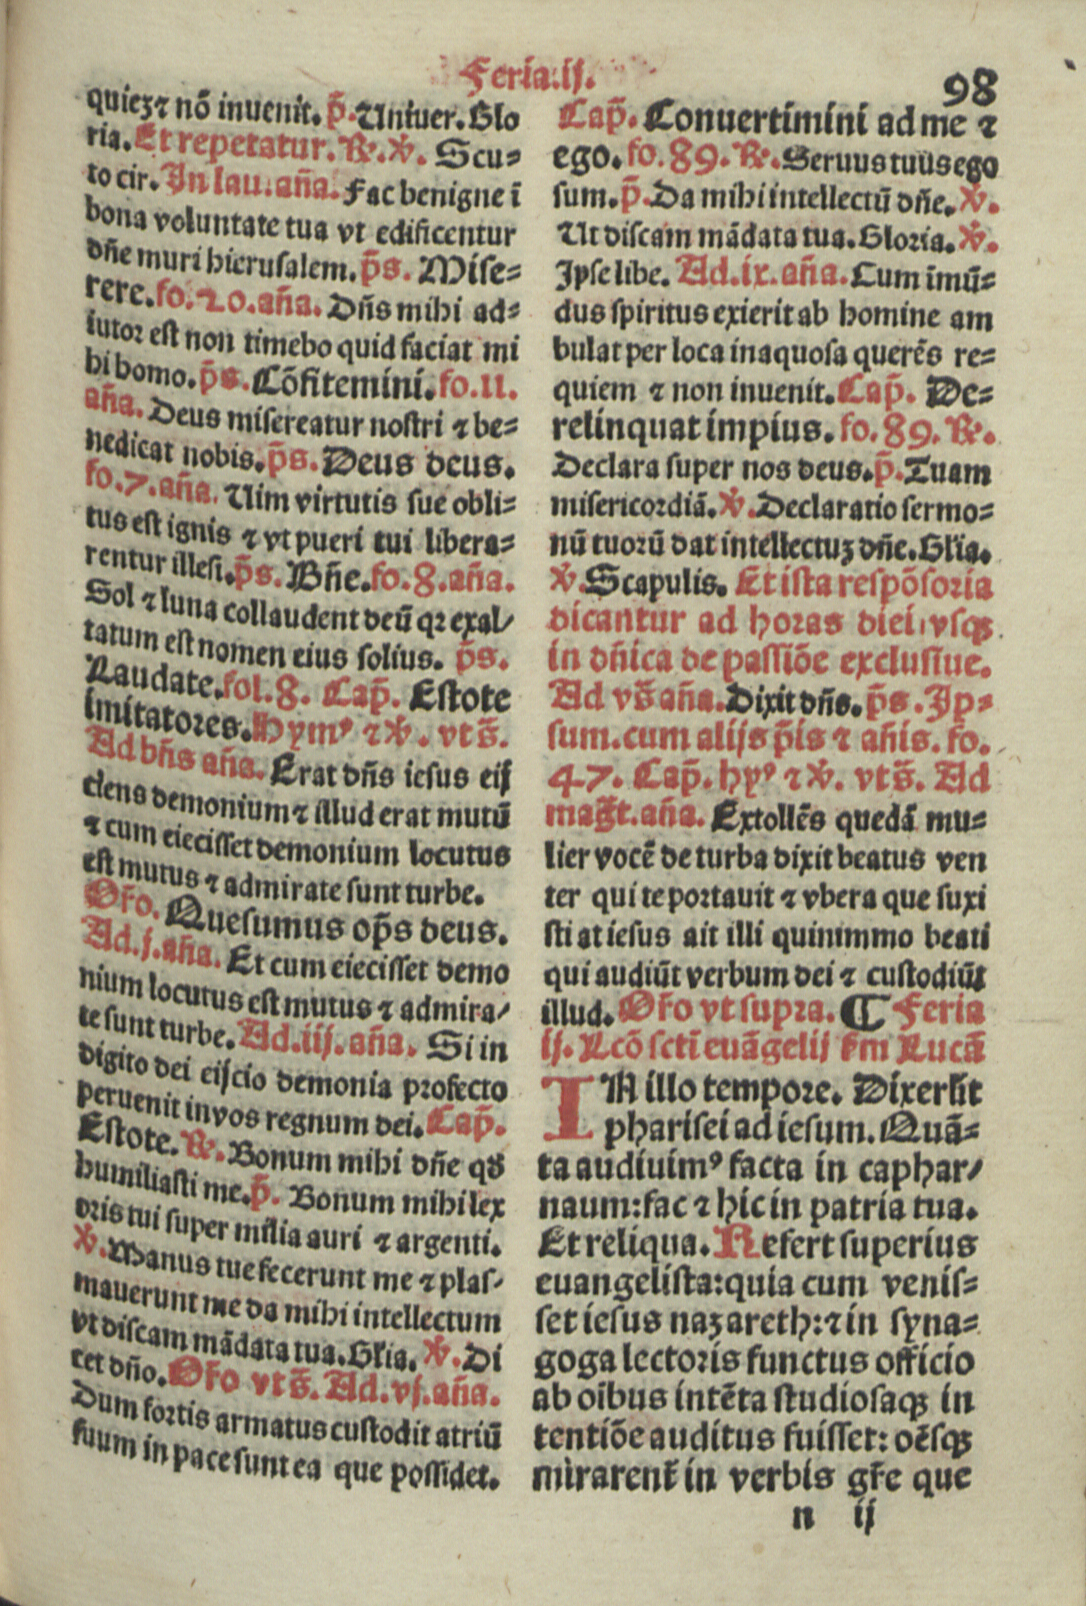 Feria.ij.
98
quieꝫ ⁊ nõ inuenit. p̃. Uniuer. Glo
ria. Et repetatur. ℟. ℣. Scu⸗
to cir. In lau. añã. Fac benigne ĩ
bona voluntate tua vt edificentur
dñe muri hierusalem. p̃s. Mise⸗
rere. fo. 20. aña. Dñs mihi ad⸗
iutor est non timebo quid faciat mi
hi homo. p̃s. Cõfitemini. fo. 11.
aña. Deus misereatur nostri ⁊ be⸗
nedicat nobis. p̃s. Deus deus.
fo. 7. aña. Uim virtutis sue obli⸗
tus est ignis ⁊ vt pueri tui libera⸗
rentur illesi. p̃s. Bñe. fo. 8. aña.
Sol ⁊ luna collaudent deũ qꝛ exal/
tatum est nomen eius solius. p̃s.
Laudate. fol. 8. Cap̃. Estote
imitatores. Hymꝰ ⁊ ℣. vt s̃.
Ad bñs aña. Erat dñs iesus eij
ciens demonium ⁊ illud erat mutũ
⁊ cum eiecisset demonium locutus
est mutus ⁊ admirate sunt turbe.
Oro. Quesumus op̃s deus.
Ad. j. aña. Et cum eiecisset demo
nium locutus est mutus ⁊ admira/
te sunt turbe. Ad. iij. aña. Si in
digito dei eijcio demonia profecto
peruenit in vos regnum dei. Cap̃.
Estote. ℟. Bonum mihi dñe qđ
humiliasti me. p̃. Bonum mihi lex
oris tui super milia auri ⁊ argenti.
℣. Manus tue fecerunt me ⁊ plas/
mauerunt me da mihi intellectum
vt discam mãdata tua. Glia. ℣. Di
cet dño. Oro vt s̃. Ad. vj. aña.
Dum fortis armatus custodit atriũ
suum in pace sunt ea que possidet.
Cap̃. Conuertimini ad me ⁊
ego. fo. 89. ℟. Seruus tuus ego
sum. p̃. Da mihi intellectũ dñe. ℣.
Ut discam mãdata tua. Gloria. ℣.
Ipse libe. Ad. ix. aña. Cum ĩmũ⸗
dus spiritus exierit ab homine am
bulat per loca inaquosa querẽs re⸗
quiem ⁊ non inuenit. Cap̃. De⸗
relinquat impius. fo. 89. ℟.
Declara super nos deus. p̃. Tuam
misericordiã. ℣. Declaratio sermo⸗
nũ tuorũ dat intellectuꝫ dñe. Glia.
℣. Scapulis. Et ista respõsoria
dicantur ad horas diei, vsqꝫ
in dñica de passiõe exclusiue.
Ad vs̃ aña. Dixit dñs. p̃s. Ip⸗
sum. cum alijs p̃is ⁊ añis. fo.
47. Cap̃. hyꝰ ⁊ ℣. vt s̃. Ad
mag̃t. aña. Extollẽs quedã mu⸗
lier vocẽ de turba dixit beatus ven
ter qui te portauit ⁊ vbera que suxi
sti at iesus ait illi quinimmo beati
qui audiũt verbum dei ⁊ custodiũt
illud. Oro vt supra. ¶ Feria
ij. Lcõ scti euãgelij km Lucã
IN illo tempore. Dixerũt
pharisei ad iesum. Quã⸗
ta audiuimꝰ facta in caphar/
naum: fac ⁊ hic in patria tua.
Et reliqua. Refert superius
euangelista: quia cum venis⸗
set iesus nazareth: ⁊ in syna⸗
goga lectoris functus officio
ab oibus intẽta studiosaqꝫ in
tentiõe auditus fuisset: oẽsqꝫ
mirarent̃ in verbis gr̃e que
n ij